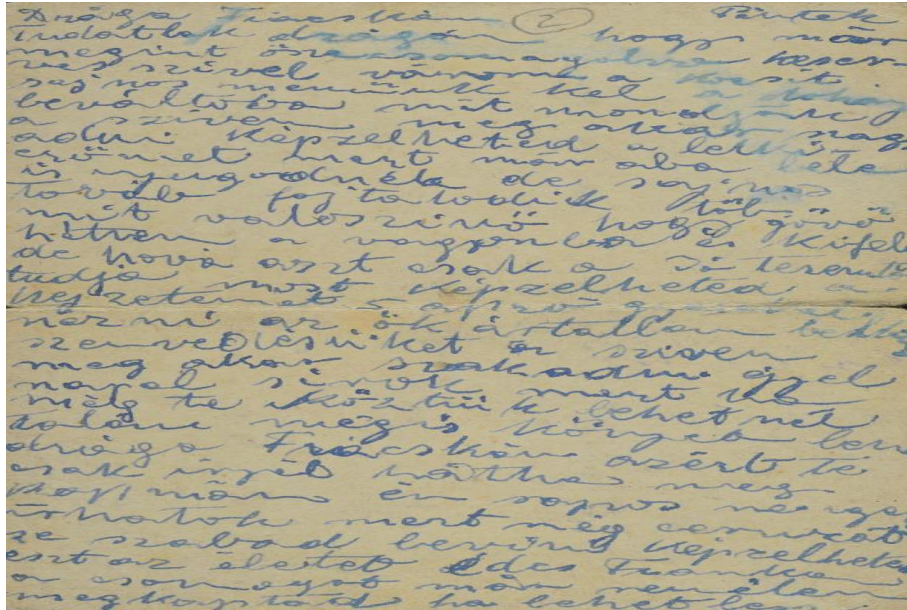 Drága Fiacskám (2) Péntek
tudótlak drágán hogy már
megint össze csomagolva keser
ves szivel várom a kocsit
sajnos menünk kel a dohány
beváltoba mit mondjak
a szivem meg akar
adni képzelheted a lelki
erömet mert már aba bele
is nyugodnék de sajnos
továb fojtatodik töb
mit valoszinü hogy jövö
héten a vagonba és kifelé
de hová aszt csak a Jó teremtö
tudja most képzelheted a
hejzetemet 5 apró
nézni az ök ártallan
szenvedésüket a szivem
meg akar szakadni éjjel
napal sirok mert
még te köztük lehetnél
talán mégis könyeb len
drága Fiacskám azért te
csak irjál hátha meg
kapnám én sajnos
irhatok mert még ceruzát
se szabad bevini képzelheted
eszt az életet Édes Fiamkam
a csomagot már nem
megkaptad ha lehet